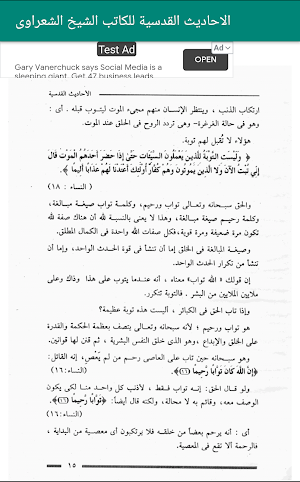 الاحاديث القدسية للكاتب الشيخ الشعراوى
Test Ad
Ad
Gary Vanerchuck says Social Media is a
sleeping giant. Get 47 business leads
OPEN
الأحاديث القدسية
ارتكاب الذنب ، وينتظر الإنسان منهم مجىء الموت ليتوب قبله . أى :
وهو فى حالة الغرغرة - وهى تردد الروح فى الحلق عند الموت.
هؤلاء لا تُقبل لهم توبة.
﴿ وَلَيْسَتِ التَّوْبَةُ لِلَّذِينَ يَعْمَلُونَ السَّيِّئَاتِ حَتَّىٰ إِذَا حَضَرَ أَحَدَهُمُ الْمَوْتُ قَالَ
إِنِّي تُبْتُ الْآنَ وَلَا الَّذِينَ يَمُوتُونَ وَهُمْ كُفَّارٌ أُولَٰئِكَ أَعْتَدْنَا لَهُمْ عَذَابًا أَلِيمًا ﴾.
( النساء : ١٨ )
والحق سبحانه وتعالى تواب ورحيم، وكلمة تواب صيغة مبالغة،
وكلمة رحيم صيغة مبالغة، وهذا لا يعنى بالنسبة لله أن هناك صفة لله
تكون مرة ضعيفة ومرة قوية، فكل صفات الله واحدة فى الكمال المطلق.
وصيغة المبالغة فى الخلق إما أن تنشأ فى قوة الحدث الواحد، وإما أن
تنشأ من تكرار الحدث الواحد.
إن قولك « الله تواب» معناه ، أنه عندما يتوب على هذا وذاك وعلى
ملايين الملايين من البشر . فالتوبة تتكرر.
وإذا تاب الحق فى الكبائر ، أليست هذه توبة عظيمة؟
هو تواب ورحيم ؛ لأنه سبحانه وتعالى يتصف بعظمة الحكمة والقدرة
على الخلق والإبداع ،وهو الذى خلق النفس البشرية ، ثم قنن لها قوانين.
وهو سبحانه حين تاب على العاصى رحم من لم يَعْصِ، إنه القائل:
﴿إِنَّ اللَّهَ كَانَ تَوَّابًا رَّحِيمًا (١٦)﴾. (النساء:١٦)
ولو قال الحق: إنه تواب فقط ، لأذنب كل واحد منا لكى يكون
الوصف معه، وقائم به لا محالة، ولكنه قال أيضاً: ﴿تَوَّابًا رَّحِيمًا (١٦)﴾.
(النساء:١٦)
أى : أنه يرحم بعضاً من خلقه فلا يرتكبون أى معصية من البداية ،
فالرحمة ألا تقع فى المعصية.
١٥